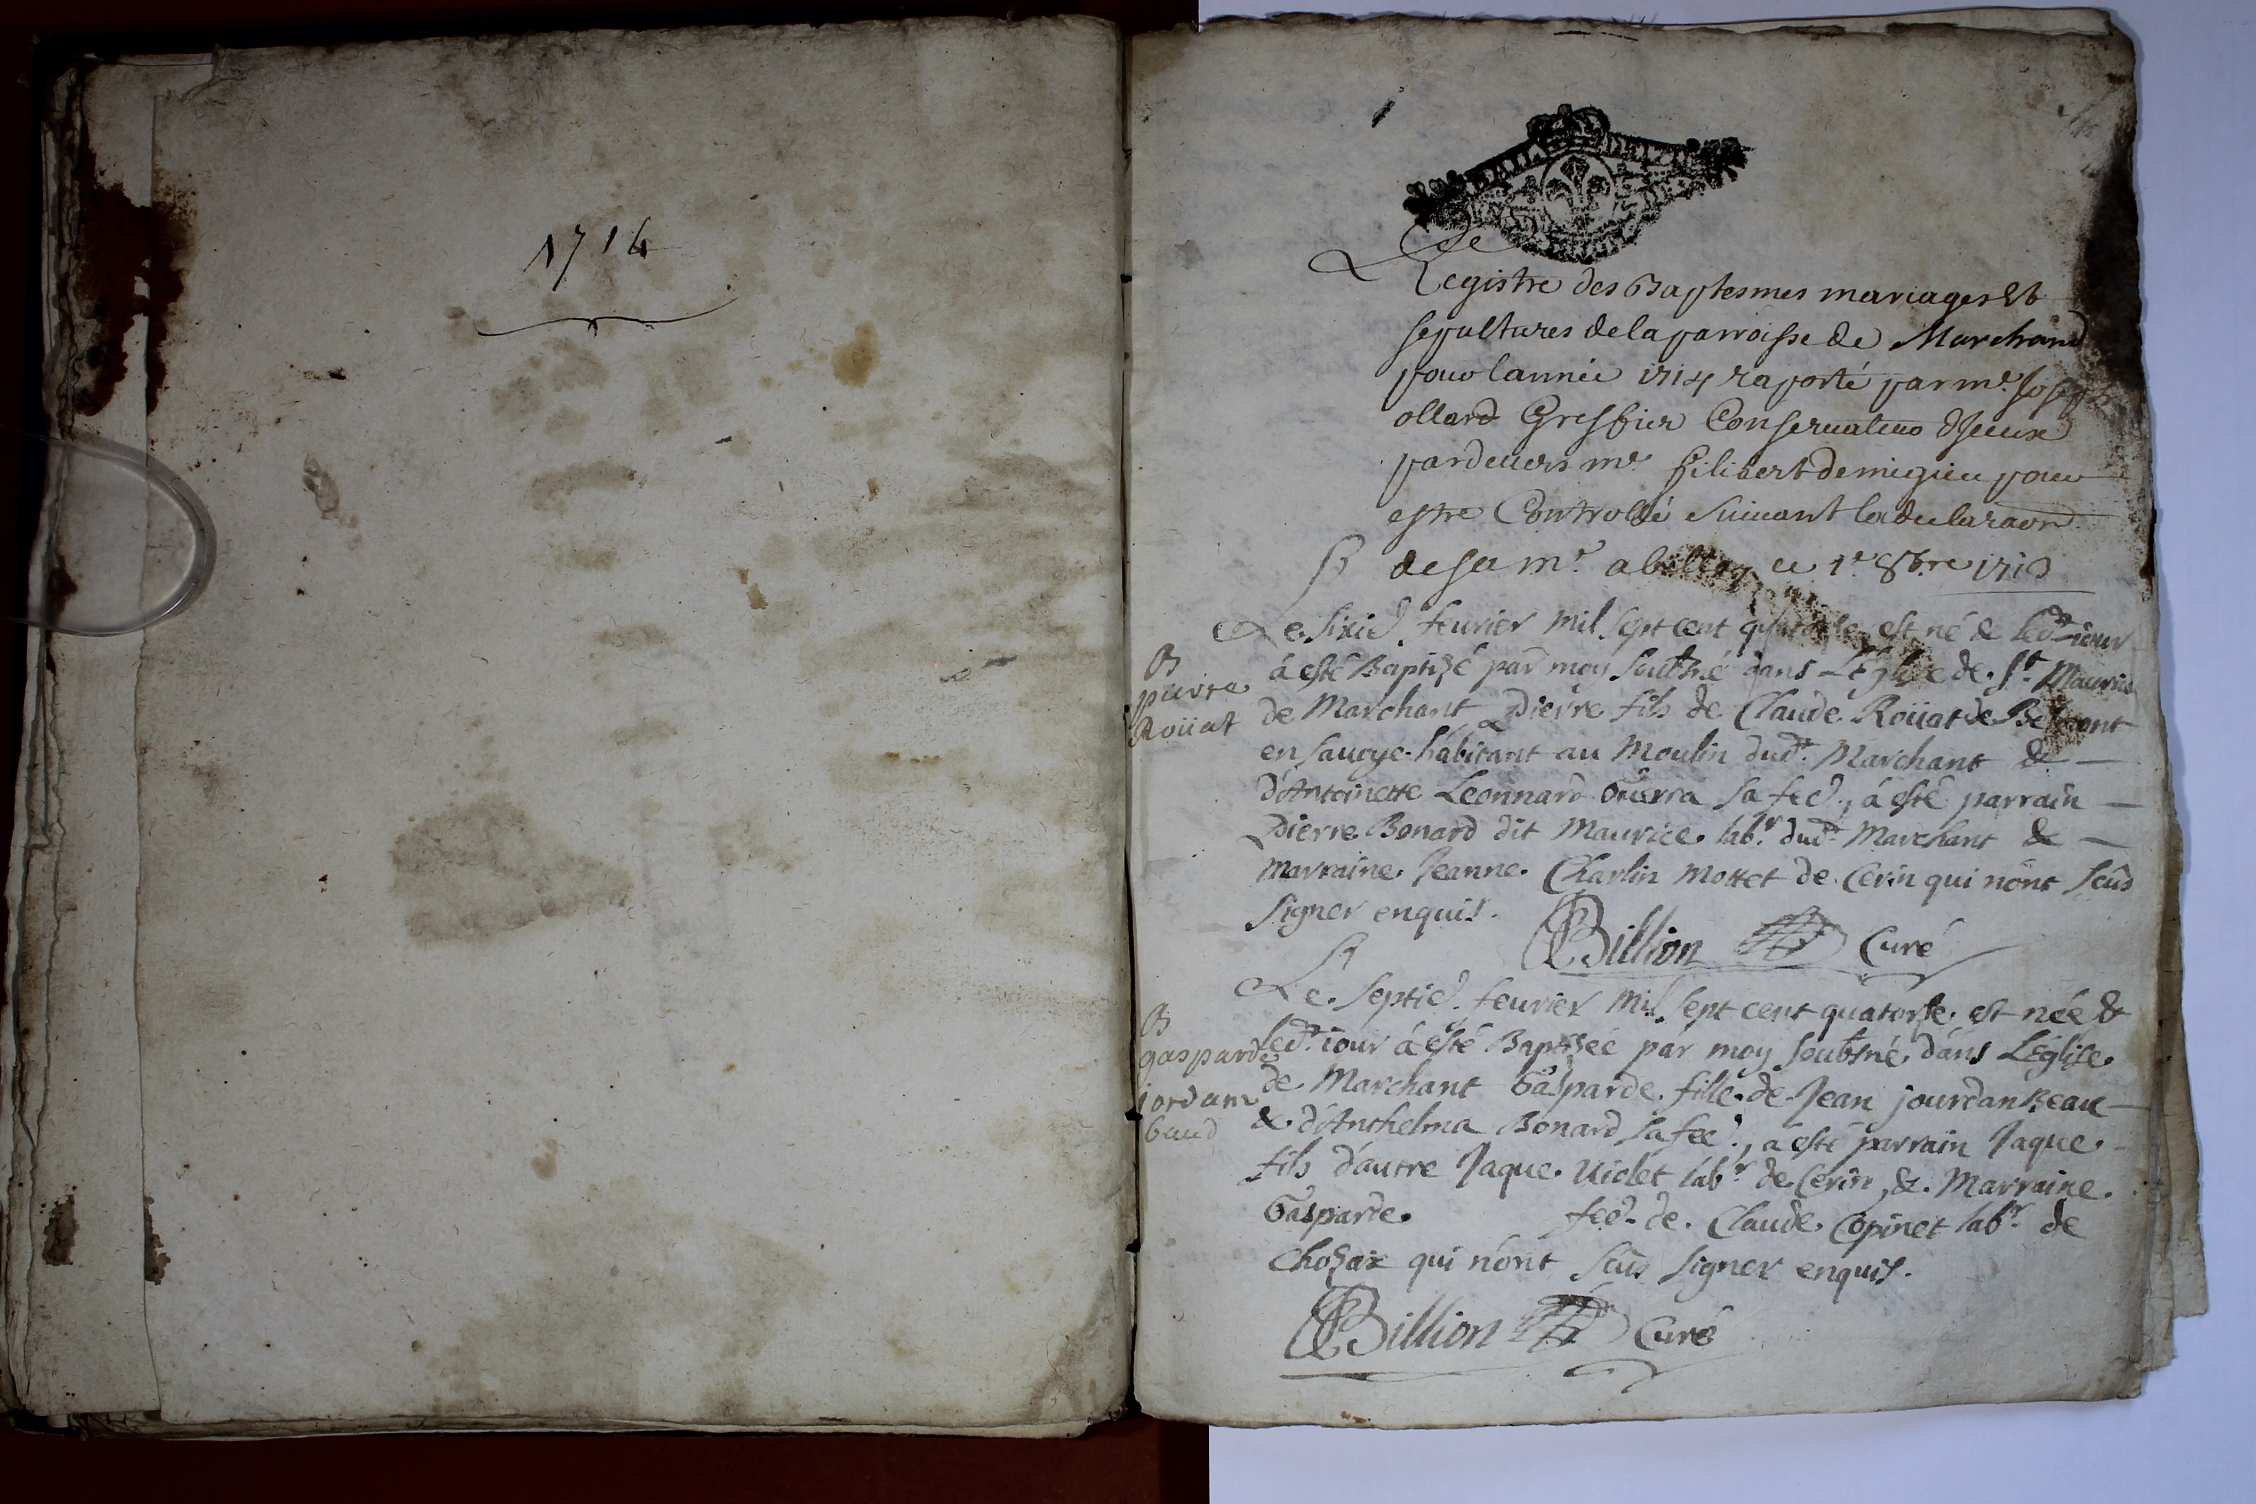 1714
Registre des Baptesmes mariages Et
sepultures de la parroisse de Marchand
pour lannée 1714 raporté par me. Joseph
ollard Greffier Conservateur
pardevers me. filibert demigieu pour
estre Controllé suivant la declaraon
de sa me. a belley ce 1e 8bre 1713
Le sixie. fevrier mil sept cent quatorse est né & led. iour
B
pierre
Roüat
à esté Baptizé par moy soubsné dans L'Eglise de St. Maurice
de Marchant Pierre fils de Claude Roüat de Belmont
en savoye habitant au Moulin dud. Marchant &
d'Antoinette Leonnard sa fee., à esté parrain
Pierre Bonard dit Maurice labr. dud. Marchant &
Marraine Jeanne Charlin Mottet de Cerin qui nont sçûs
signer enquis.
Billion Curé
Le septie. fevrier mil sept cent quatorse est née &
B
gasparde
jordam
baud
led. iour à esté Baptizée par moy soubsné dans L'Eglise
de Marchant Gasparde fille de Jean jourdan Beau
& d'Anthelma Bonard sa fee., à esté parrain Jaque
fils d'autre Jaque Violet labr. de Cerin, & Marraine
Gasparde fee. de Claude Copinet labr. de
Chozax qui nont sçûs signer enquis.
Billion Curé